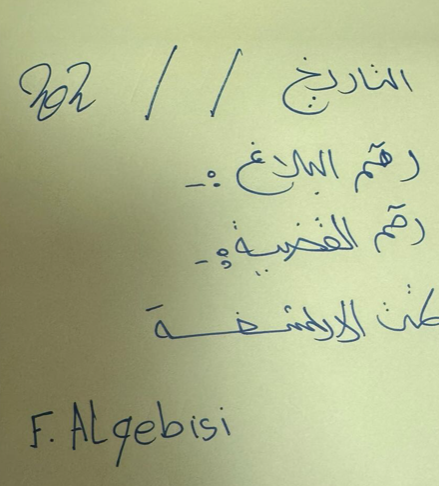 التاريخ / / 202
رقم البلاغ :-
رقم القضية :-
تمت الارشفة
F. ALgebisi